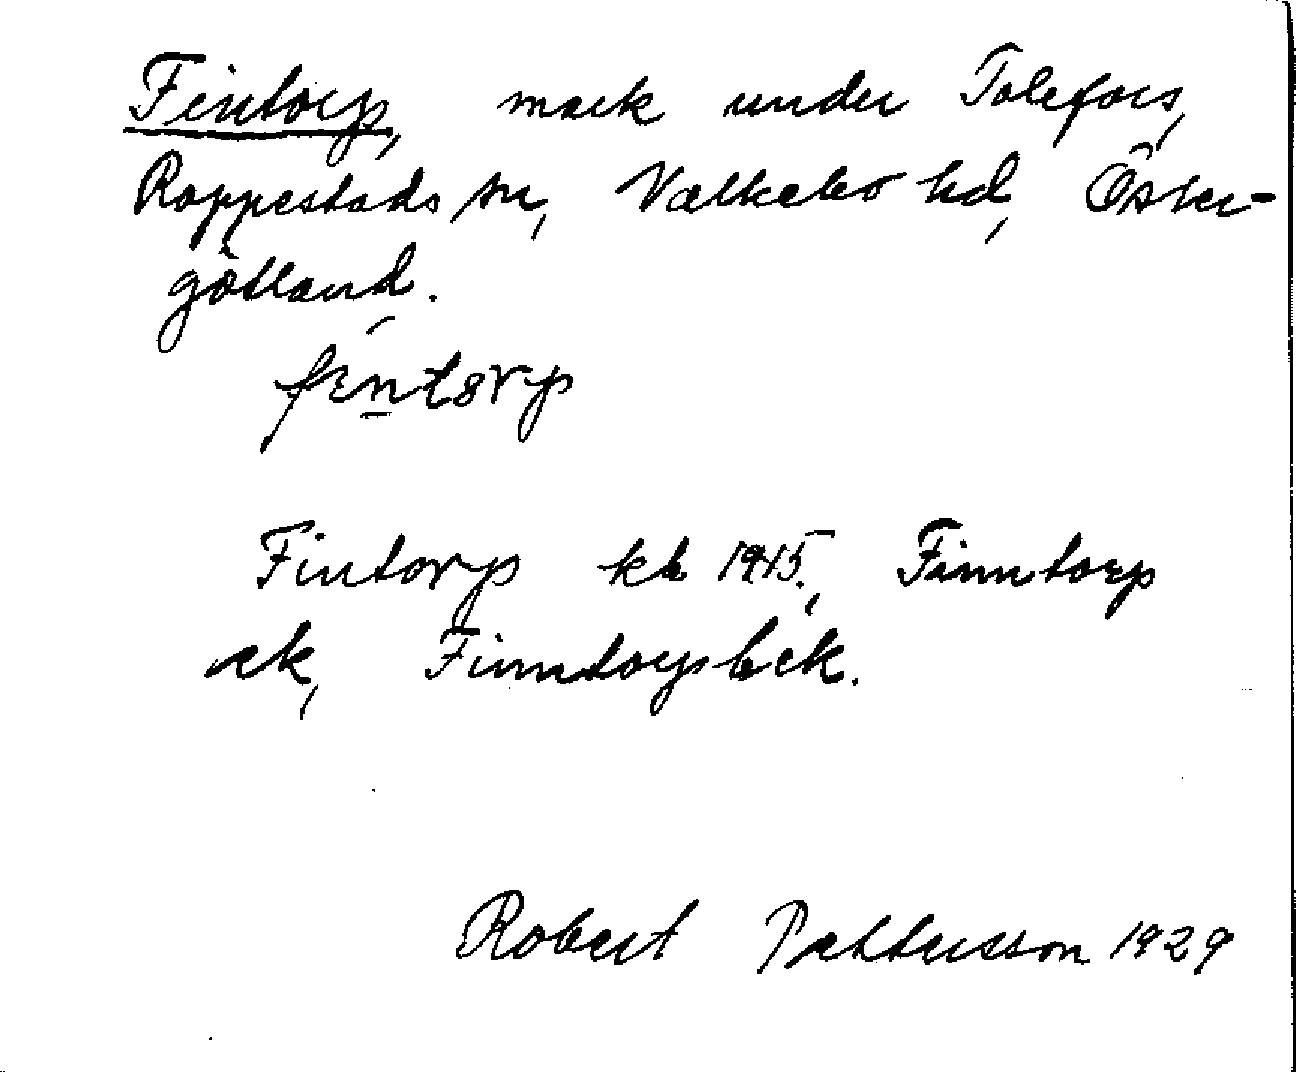 Fintorp, mark under Tolefors,
Rappestads sn, Valkebo hd, Öster-
götland.
Fintorp kk 1915., Finntorp
ek, Finntorpsbek.
Robert Pettersson 1929